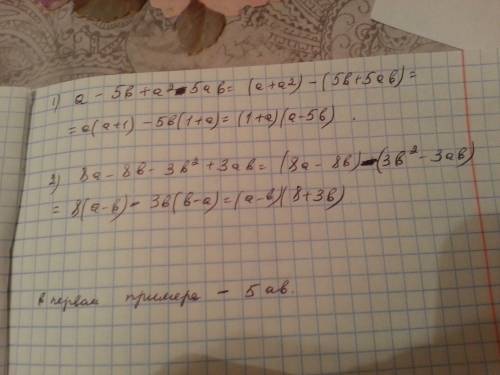 1) a - 5b + a² - 5ab = (a + a²) - (5b + 5ab) =
= a(a+1) - 5b(1+a) = (1+a)(a-5b) .
2) 8a - 8b - 3b² + 3ab = (8a - 8b) - (3b² - 3ab)
= 8(a-b) - 3b(b-a) = (a-b)(8+3b)
в первом примере - 5ab.